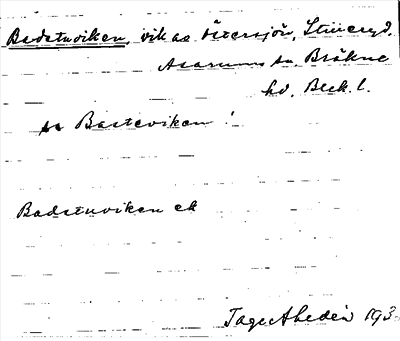 Badstuviken, vik av Östersjön, Stilleryd,
Asarums sn. Bräkne
hd. Blek. l.
Basteviken!
Badstuviken ek
Tage Ahedén 193